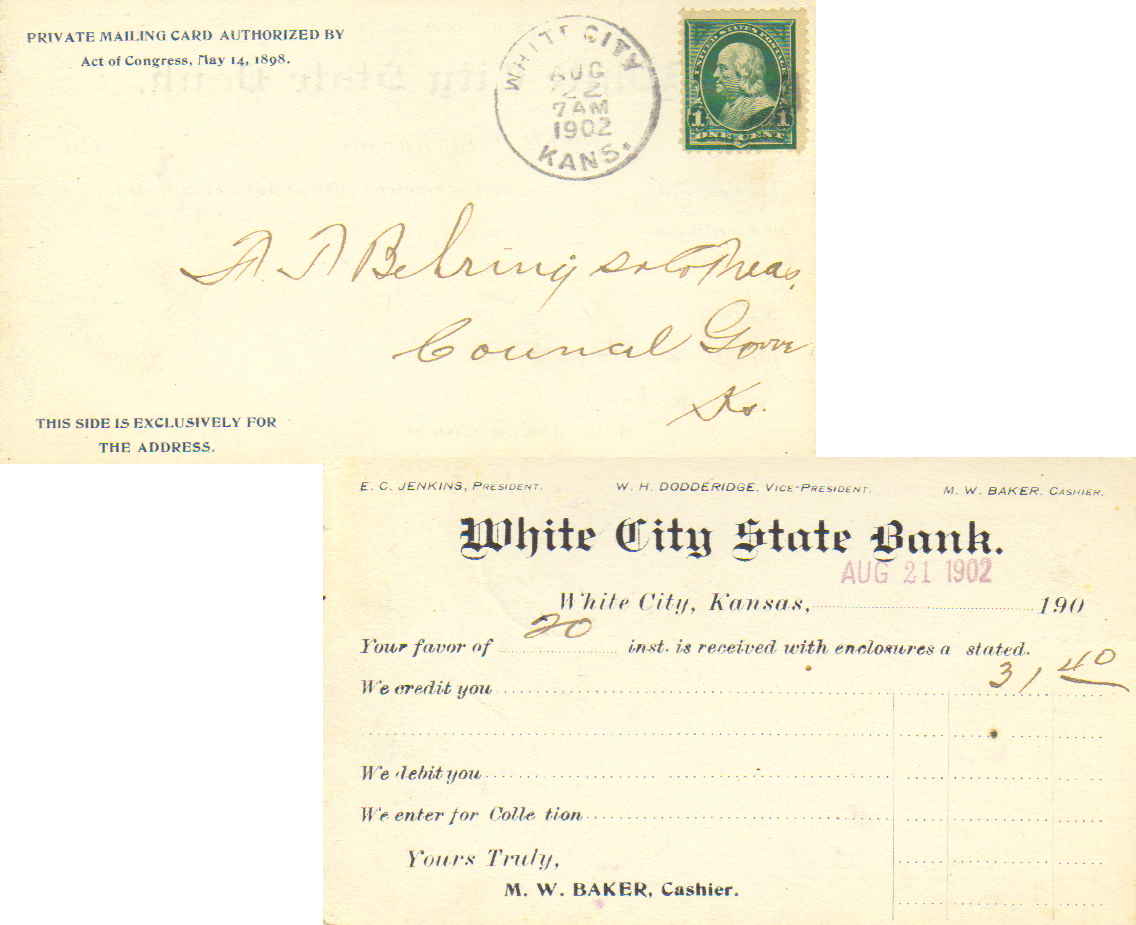 PRIVATE MAILING CARD AUTHORIZED BY
Act of Congress, May 14, 1898.
WHITE CITY
AUG
22
7AM
1902
KANS.
UNITED STATES POSTAGE
1 1
ONE CENT
Behring
Council Grove
Ks.
THIS SIDE IS EXCLUSIVELY FOR
THE ADDRESS.
E. C. JENKINS, PRESIDENT. W. H. DODDERIDGE, VICE-PRESIDENT. M. W. BAKER, CASHIER.
White City State Bank.
AUG 21 1902
White City, Kansas, 190
Your favor of 20 inst. is received with enclosures a stated.
We credit you 31,40
We debit you
We enter for Colle tion
Yours Truly,
M. W. BAKER, Cashier.